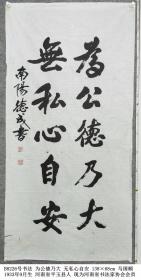 為公德乃大
無私心自安
南陽德成書
BH226号书法 为公德乃大 无私心自安 138×68cm 马国顺
1953年9月生 河南南平玉县人 现为河南省书法家协会会员